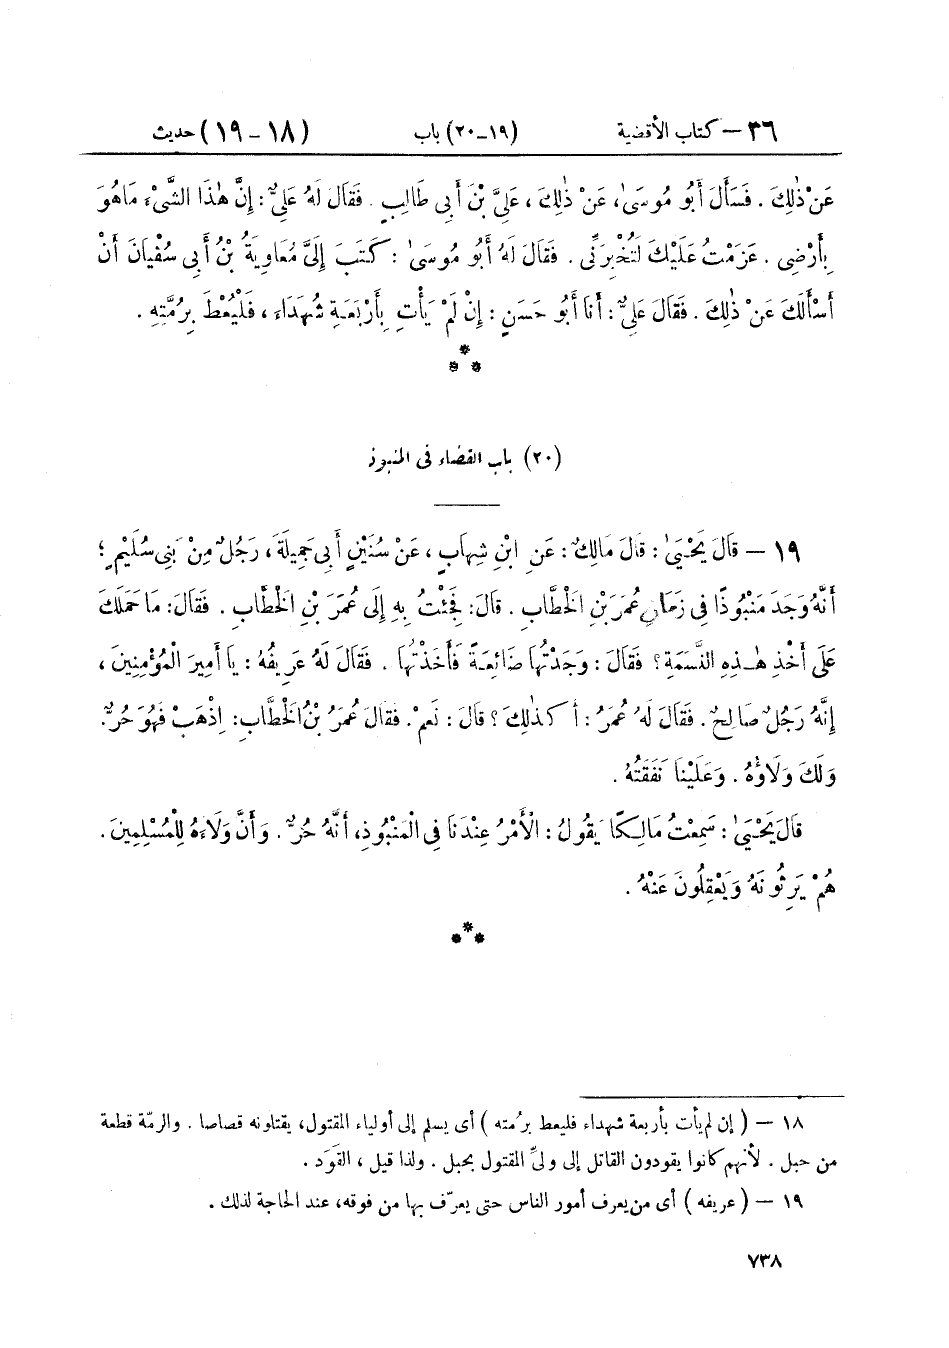 ٣٦ – كتاب الأقضية (١٩-٢٠) باب (١٨ – ١٩) حديث
عَنْ ذٰلِكَ . فَسَأَلَ أَبُو مُوسَىٰ، عَنْ ذٰلِكَ ، عَلِيَّ بْنَ أَبِى طَالِبٍ . فَقَالَ لَهُ عَلِىٌّ : إِنَّ هٰذَا الشَّىْءَ مَاهُوَ
بِأَرْضِى . عَزَمْتُ عَلَيْكَ لَتُخْبِرَنِّى . فَقَالَ لَهُ أَبُو مُوسَىٰ : كَتَبَ إِلَىَّ مُعَاوِيَةُ بْنُ أَبِى سُفْيَانَ أَنْ
أَسْأَلَكَ عَنْ ذٰلِكَ . فَقَالَ عَلِىٌّ : أَنَا أَبُو حَسَنٍ : إِنْ لَمْ يَأْتِ بِأَرْبَعَةِ شُهَدَاءَ ، فَلْيُعْطَ بِرُمَّتِهِ .
***
(٢٠) باب القضاء فى المنبوذ
١٩ – قَالَ يَحْيَىٰ : قَالَ مَالِكٌ : عَنِ ابْنِ شِهَابٍ ، عَنْ سُنَيْنٍ أَبِى جَمِيلَةَ ، رَجُلٌ مِنْ بَنِى سُلَيْمٍ ؛
أَنَّهُ وَجَدَ مَنْبُوذًا فِى زَمَانِ عُمَرَ بْنِ الْخَطَّابِ . قَالَ: فَجِئْتُ بِهِ إِلَى عُمَرَ بْنِ الْخَطَّابِ . فَقَالَ: مَا حَمَلَكَ
عَلَى أَخْذِ هٰذِهِ النَّسَمَةِ ؟ فَقَالَ : وَجَدْتُهَا ضَائِعَةً فَأَخَذْتُهَا . فَقَالَ لَهُ عَرِيفُهُ : يَا أَمِيرَ الْمُؤْمِنِينَ ،
إِنَّهُ رَجُلٌ صَالِحٌ . فَقَالَ لَهُ عُمَرُ : أَكَذٰلِكَ ؟ قَالَ : نَعَمْ. فَقَالَ عُمَرُ بْنُ الْخَطَّابِ: اِذْهَبْ فَهُوَ حُرٌّ.
وَلَكَ وَلَاؤُهُ . وَعَلَيْنَا نَفَقَتُهُ .
قَالَ يَحْيَىٰ : سَمِعْتُ مَالِكًا يَقُولُ : الْأَمْرُ عِنْدَنَا فِى الْمَنْبُوذِ، أَنَّهُ حُرٌّ . وَأَنَّ وَلَاءَهُ لِلْمُسْلِمِينَ .
هُمْ يَرِثُونَهُ وَيَعْقِلُونَ عَنْهُ .
***
١٨ – ( إن لم يأت بأربعة شهداء فليعط برُمته ) أى يسلم إلى أولياء المقتول، يقتلونه قصاصا . والرمّة قطعة
من حبل . لأنهم كانوا يقودون القاتل إلى ولىّ المقتول بحبل . ولذا قيل ، القَوَد .
١٩ – ( عريفه ) أى من يعرف أمور الناس حتى يعرّف بها من فوقه، عند الحاجة لذلك .
٧٣٨